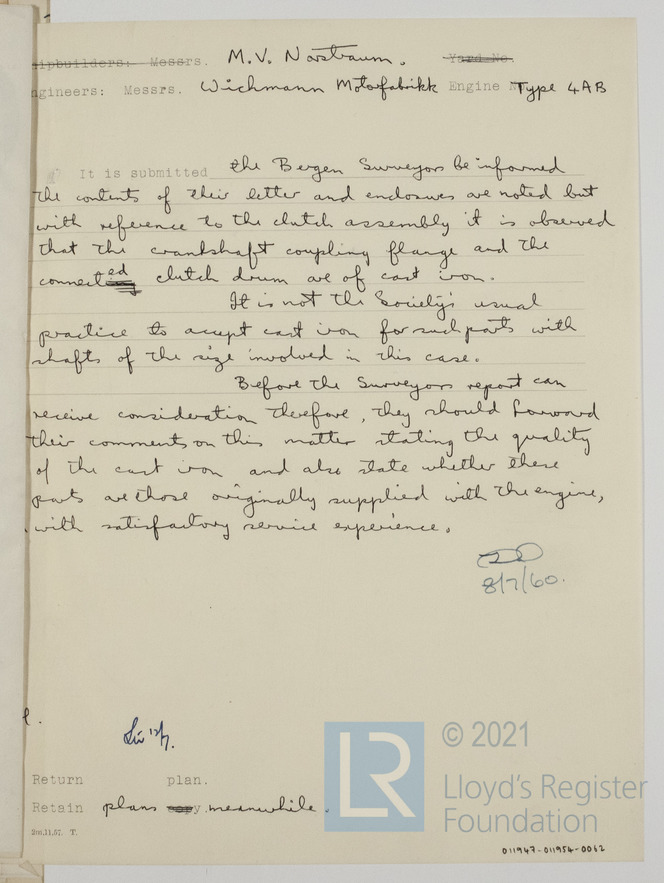 Shipbuilders: Messrs. M.V. Norstraum. Yard No.
Engineers: Messrs. Wichmann Motorfabrikk Engine No Type 4AB
It is submitted the Bergen Surveyors be informed
the contents of their letter and enclosures are noted but
with reference to the clutch assembly it is observed
that the crankshaft coupling flange and the
connected clutch drum are of cast iron.
It is not the Society's usual
practice to accept cast iron for such parts with
shafts of the size involved in this case.
Before the Surveyors report can
receive consideration therefore, they should forward
their comments on this matter stating the quality
of the cast iron and also state whether these
parts are those originally supplied with the engine,
with satisfactory service experience.
8/7/60.
Return plan.
Retain plans copy meanwhile.
2m,11,57. T.
LR
© 2021
Lloyd's Register
Foundation
011947-011954-0062